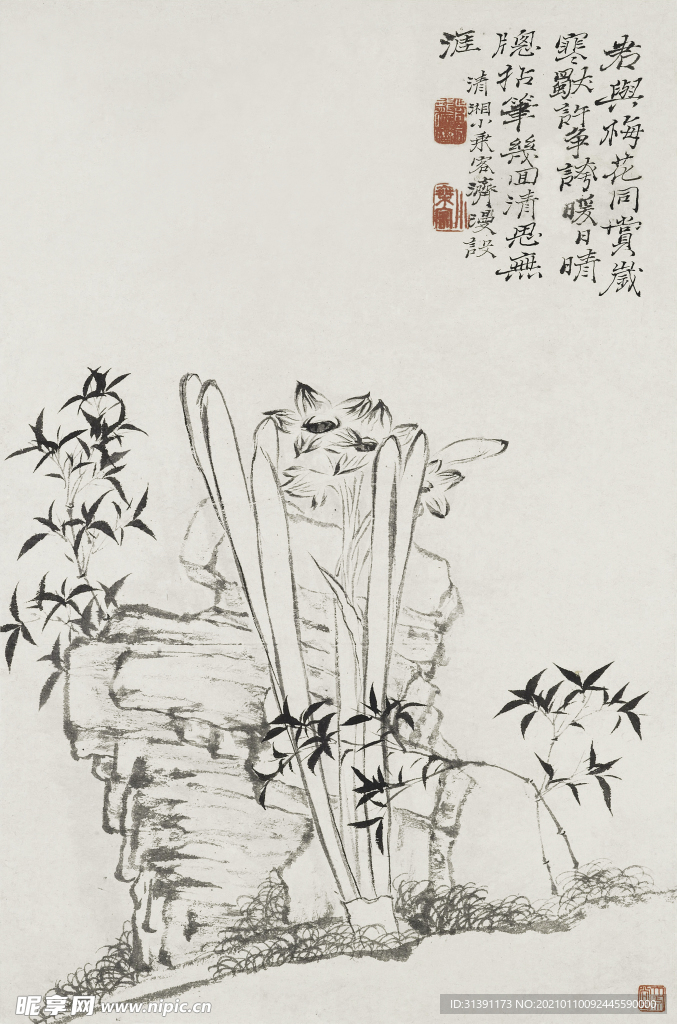 君與梅花同賞歲
寒獸許爭誇暖日晴
窻拈筆幾回清思無
涯
清湘小乘客濟漫設
小乘客
昵享网 www.nipic.cn
ID:31391173 NO:20210110092445590000